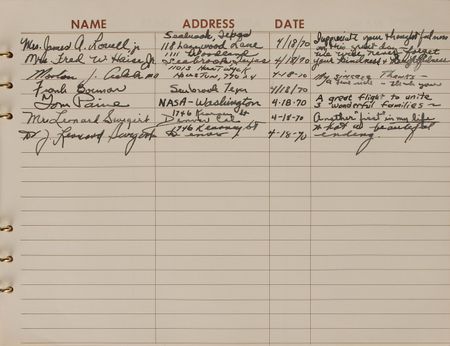 NAME ADDRESS DATE
Seabrook, Texas
Mrs. James A. Lovell, Jr. 118 Lazywood Lane 4/18/70 I appreciate your thoughtfulness on this great day.
Mrs Fred W. Haise Jr. 1111 Woodland Seabrook, Texas 4/18/70 We will never forget your kindness &
HOUSTON, 4-18-70 My sincere Thanks
Frank Borman Seabrook Texas 4/18/70
Tom Paine NASA-Washington 4-18-70 A great flight to unite 3 wonderful families
Mrs Leonard Swigert 1746 Kearney St Denver Col. 4-18-70 Another "first" in my life
Dr J. Leonard Swigert 1746 Kearney St Denver 4-18-70 What a beautiful ending.